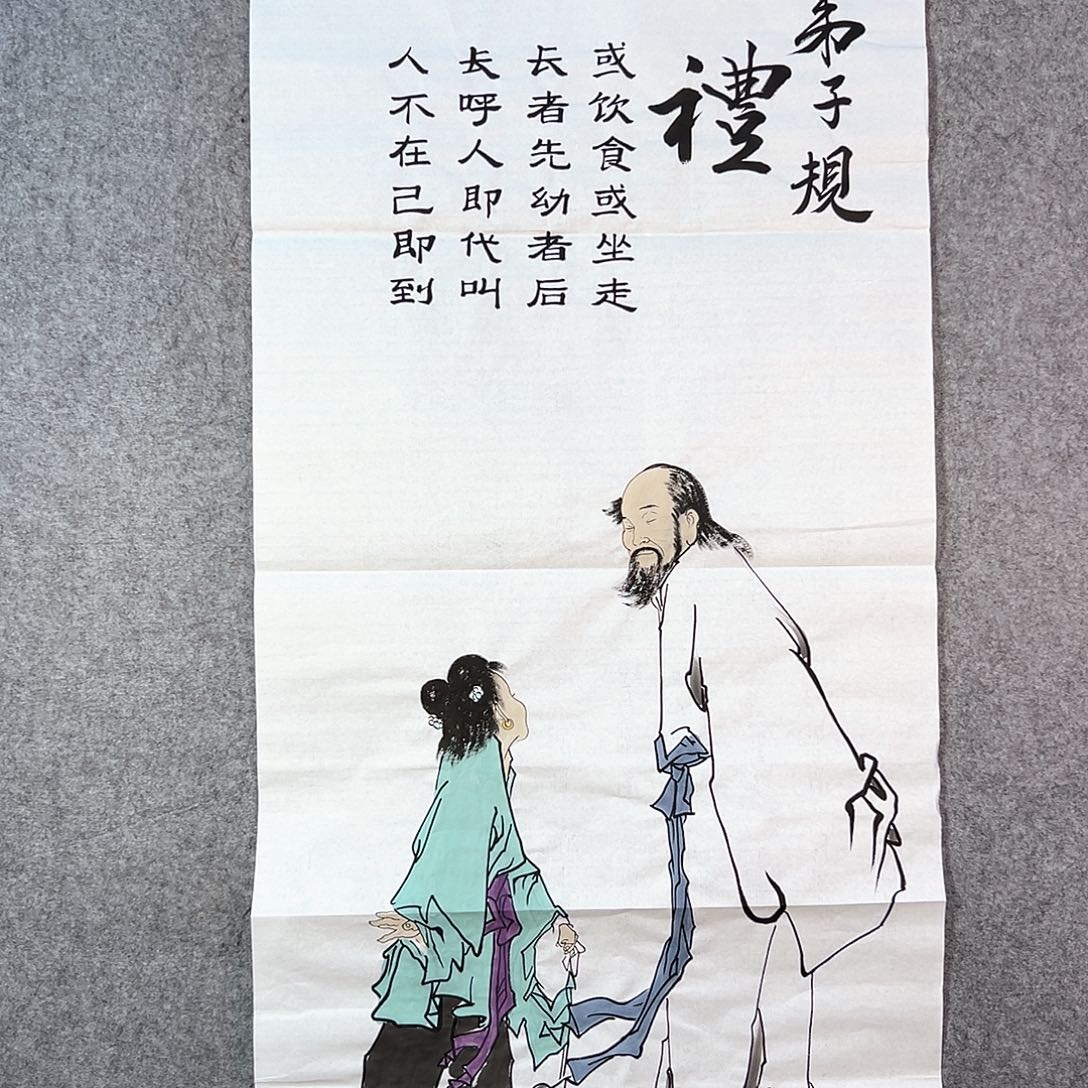 弟子規
禮
或饮食或坐走
长者先幼者后
长呼人即代叫
人不在己即到